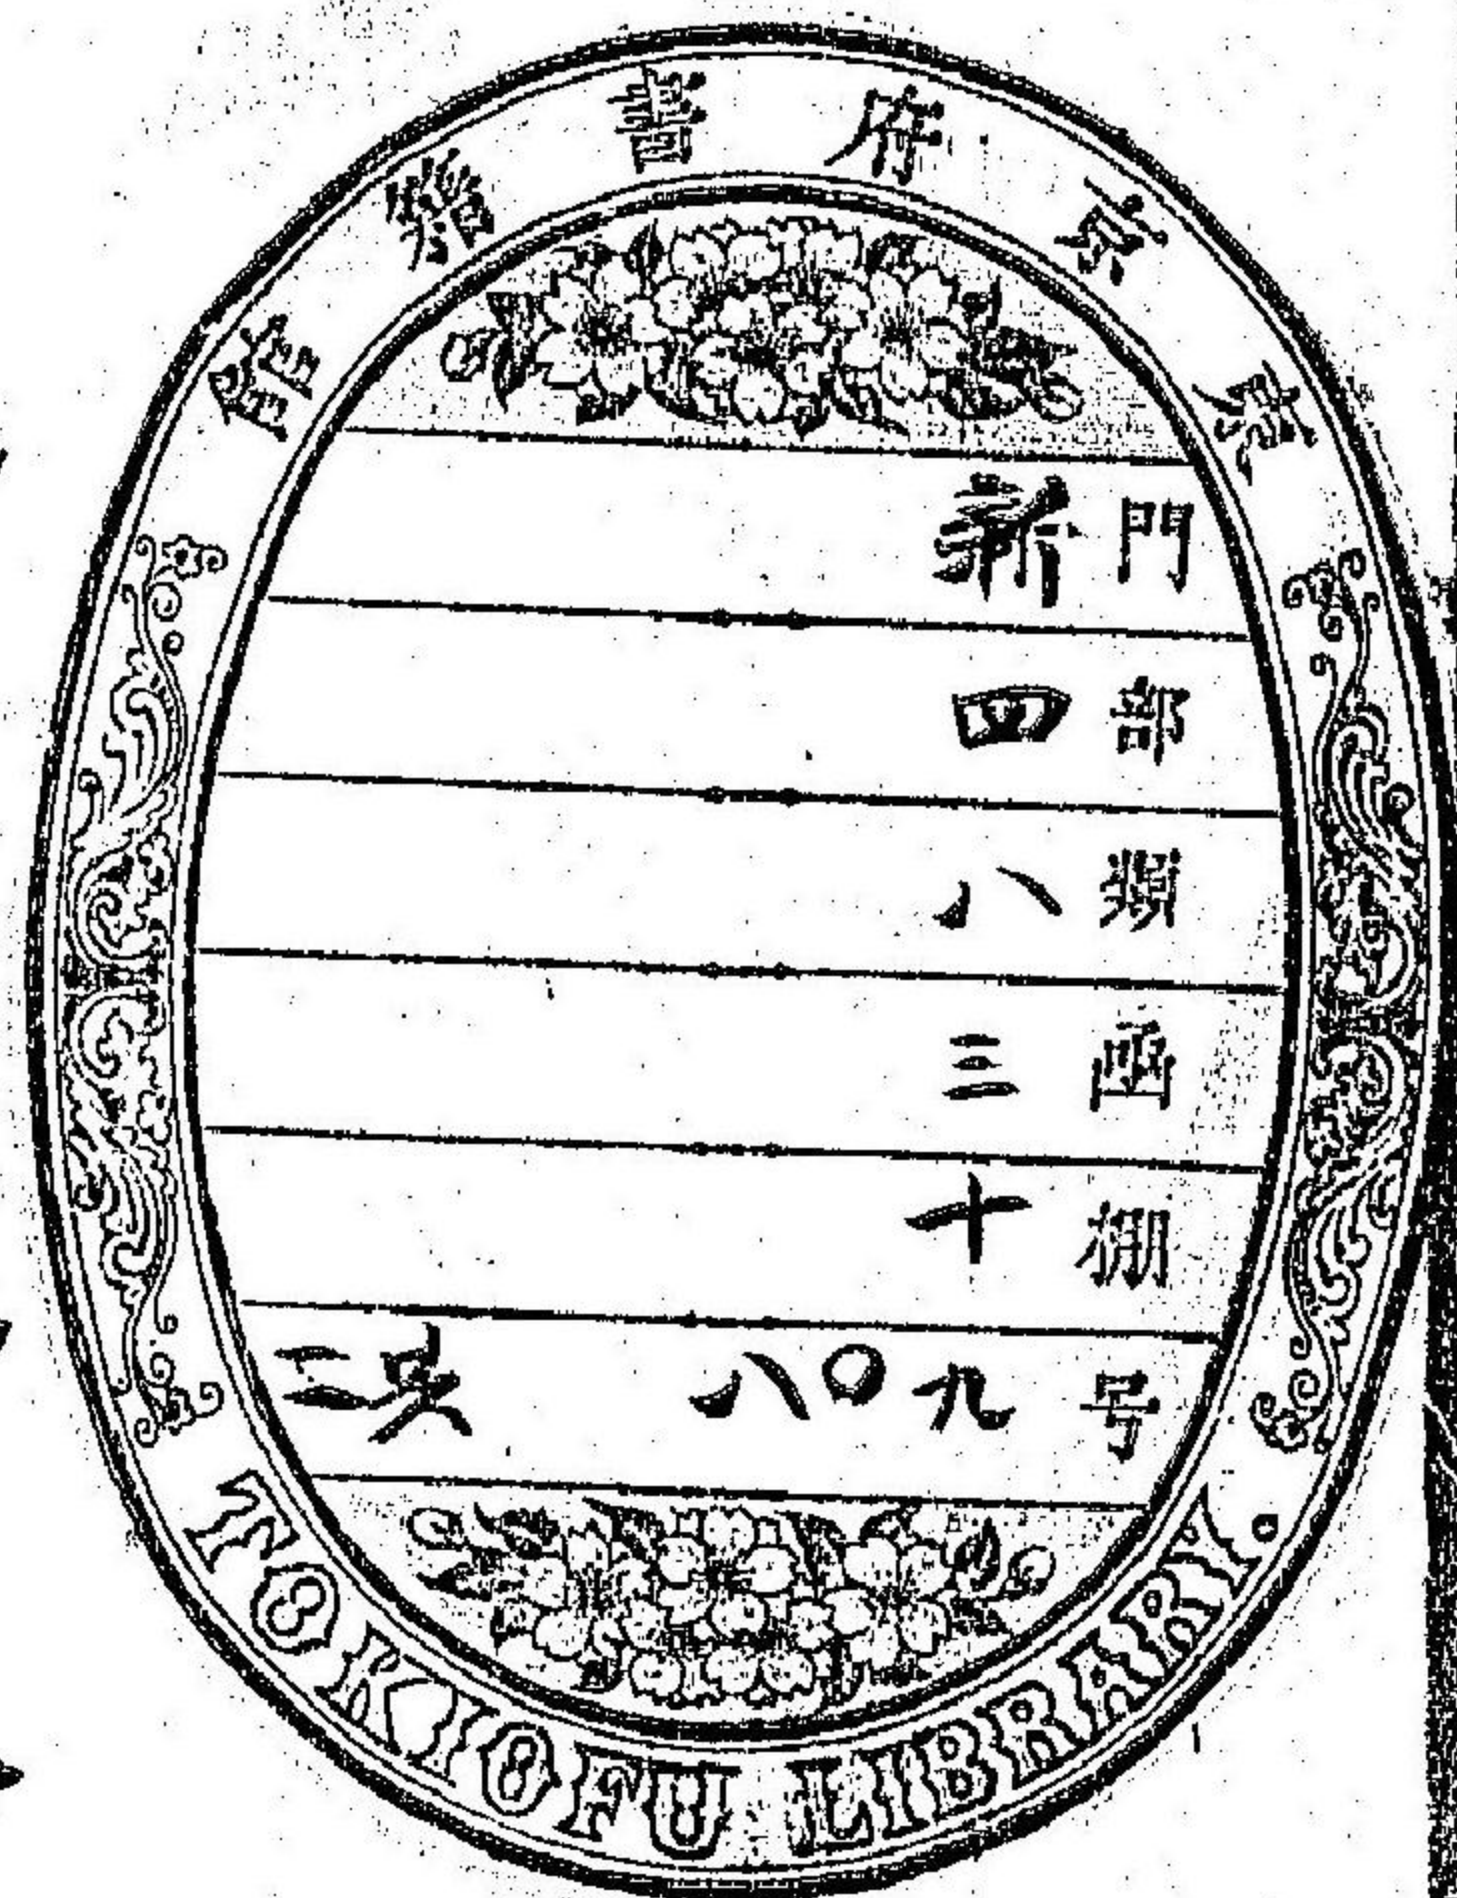 東京府書籍館
門 新
部 四
類 八
函 三
棚 十
号 九〇八 共二
TOKIOFU LIBRARY.